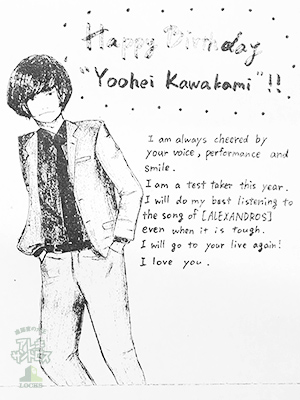 Happy Birthday
"Yoohei Kawakami"!!
I am always cheered by
your voice, performance and
smile.
I am a test taker this year.
I will do my best listening to
the song of [ALEXANDROS]
even when it is tough.
I will go to your live again!
I love you.
LOCKS!